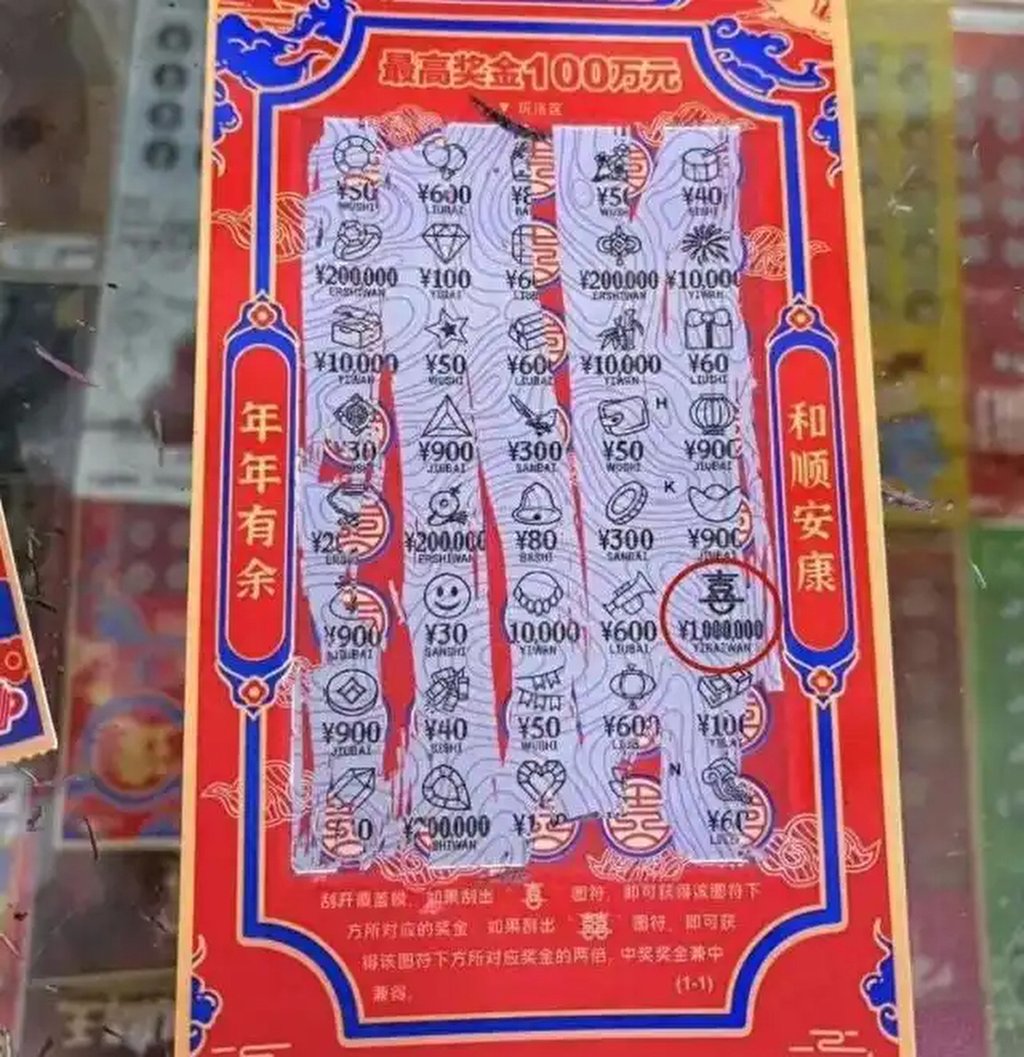 最高奖金100万元
▼ 玩法区
¥50 ¥600 ¥8 ¥50 ¥40
WUSHI LIUBAI BA WUSH SISHI
¥200,000 ¥100 ¥6 ¥200,000 ¥10,000
ERSHIWAN YIBAI LIUB ERSHIWAN YIWAN
¥10,000 ¥50 ¥600 ¥10,000 ¥60
YIWAN WUSHI LIUBAI YIWAN LIUSHI
H
¥30 ¥900 ¥300 ¥50 ¥900
JIUBAI SANBAI WUSHI JIUBAI
K
¥20 ¥200,000 ¥80 ¥300 ¥900
ERSHIWAN BASHI SANBAI JIUBAI
喜
¥900 ¥30 10,000 ¥600 ¥1,000,000
JIUBAI SANSHI YIWAN LIUBAI YIBAIWAN
¥900 ¥40 ¥50 ¥600 ¥100
JIUBAI SISHI WUSHI
N
¥200,000 ¥1 ¥60
SHIWAN
年年有余
和顺安康
刮开覆盖膜，如果刮出 喜 图符，即可获得该图符下
方所对应的奖金 如果刮出 囍 图符，即可获
得该图符下方所对应奖金的两倍，中奖奖金兼中
兼得。
(1-1)